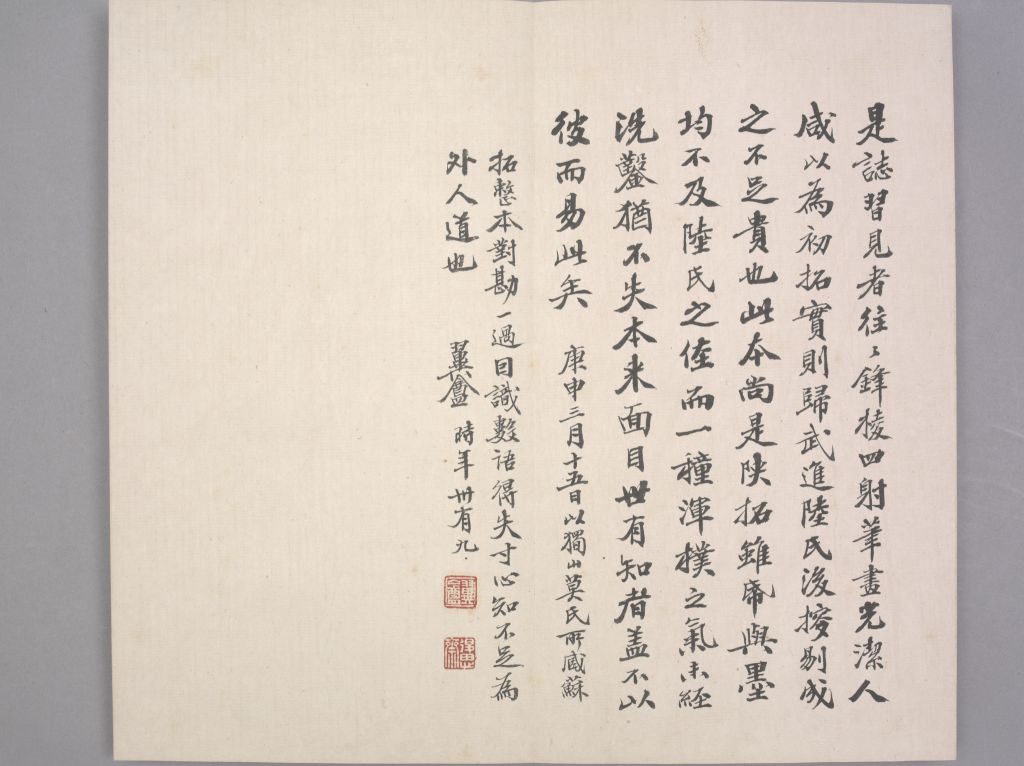 是誌習見者往〻鋒棱四射筆畫光潔人
咸以為初拓實則歸武進陸氏後撥剔成
之不足貴也此本尚是陝拓雖帋與墨
均不及陸氏之佳而一種渾樸之氣未經
洗鑿猶不失本来面目世有知者盖不以
彼而易此矣 庚申三月十五日以獨山莫氏所臧蘇
拓整本對勘一過因識數语得失寸心知不足為
外人道也 翼盦時年卅有九